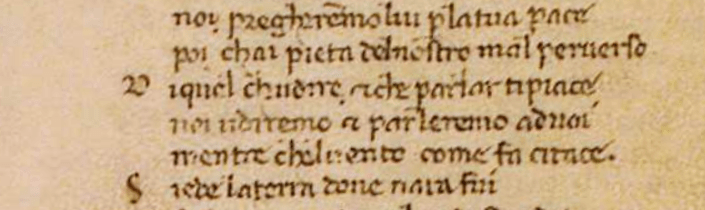 noi pregheremo lui p la tua pace
poi chai pieta del nostro mal peruerso
D iquel chudire ⁊ che parlar ti piace
noi udiremo ⁊ parleremo a duoi
mentre chel uento come fa ci tace.
S iede la terra doue nata fui